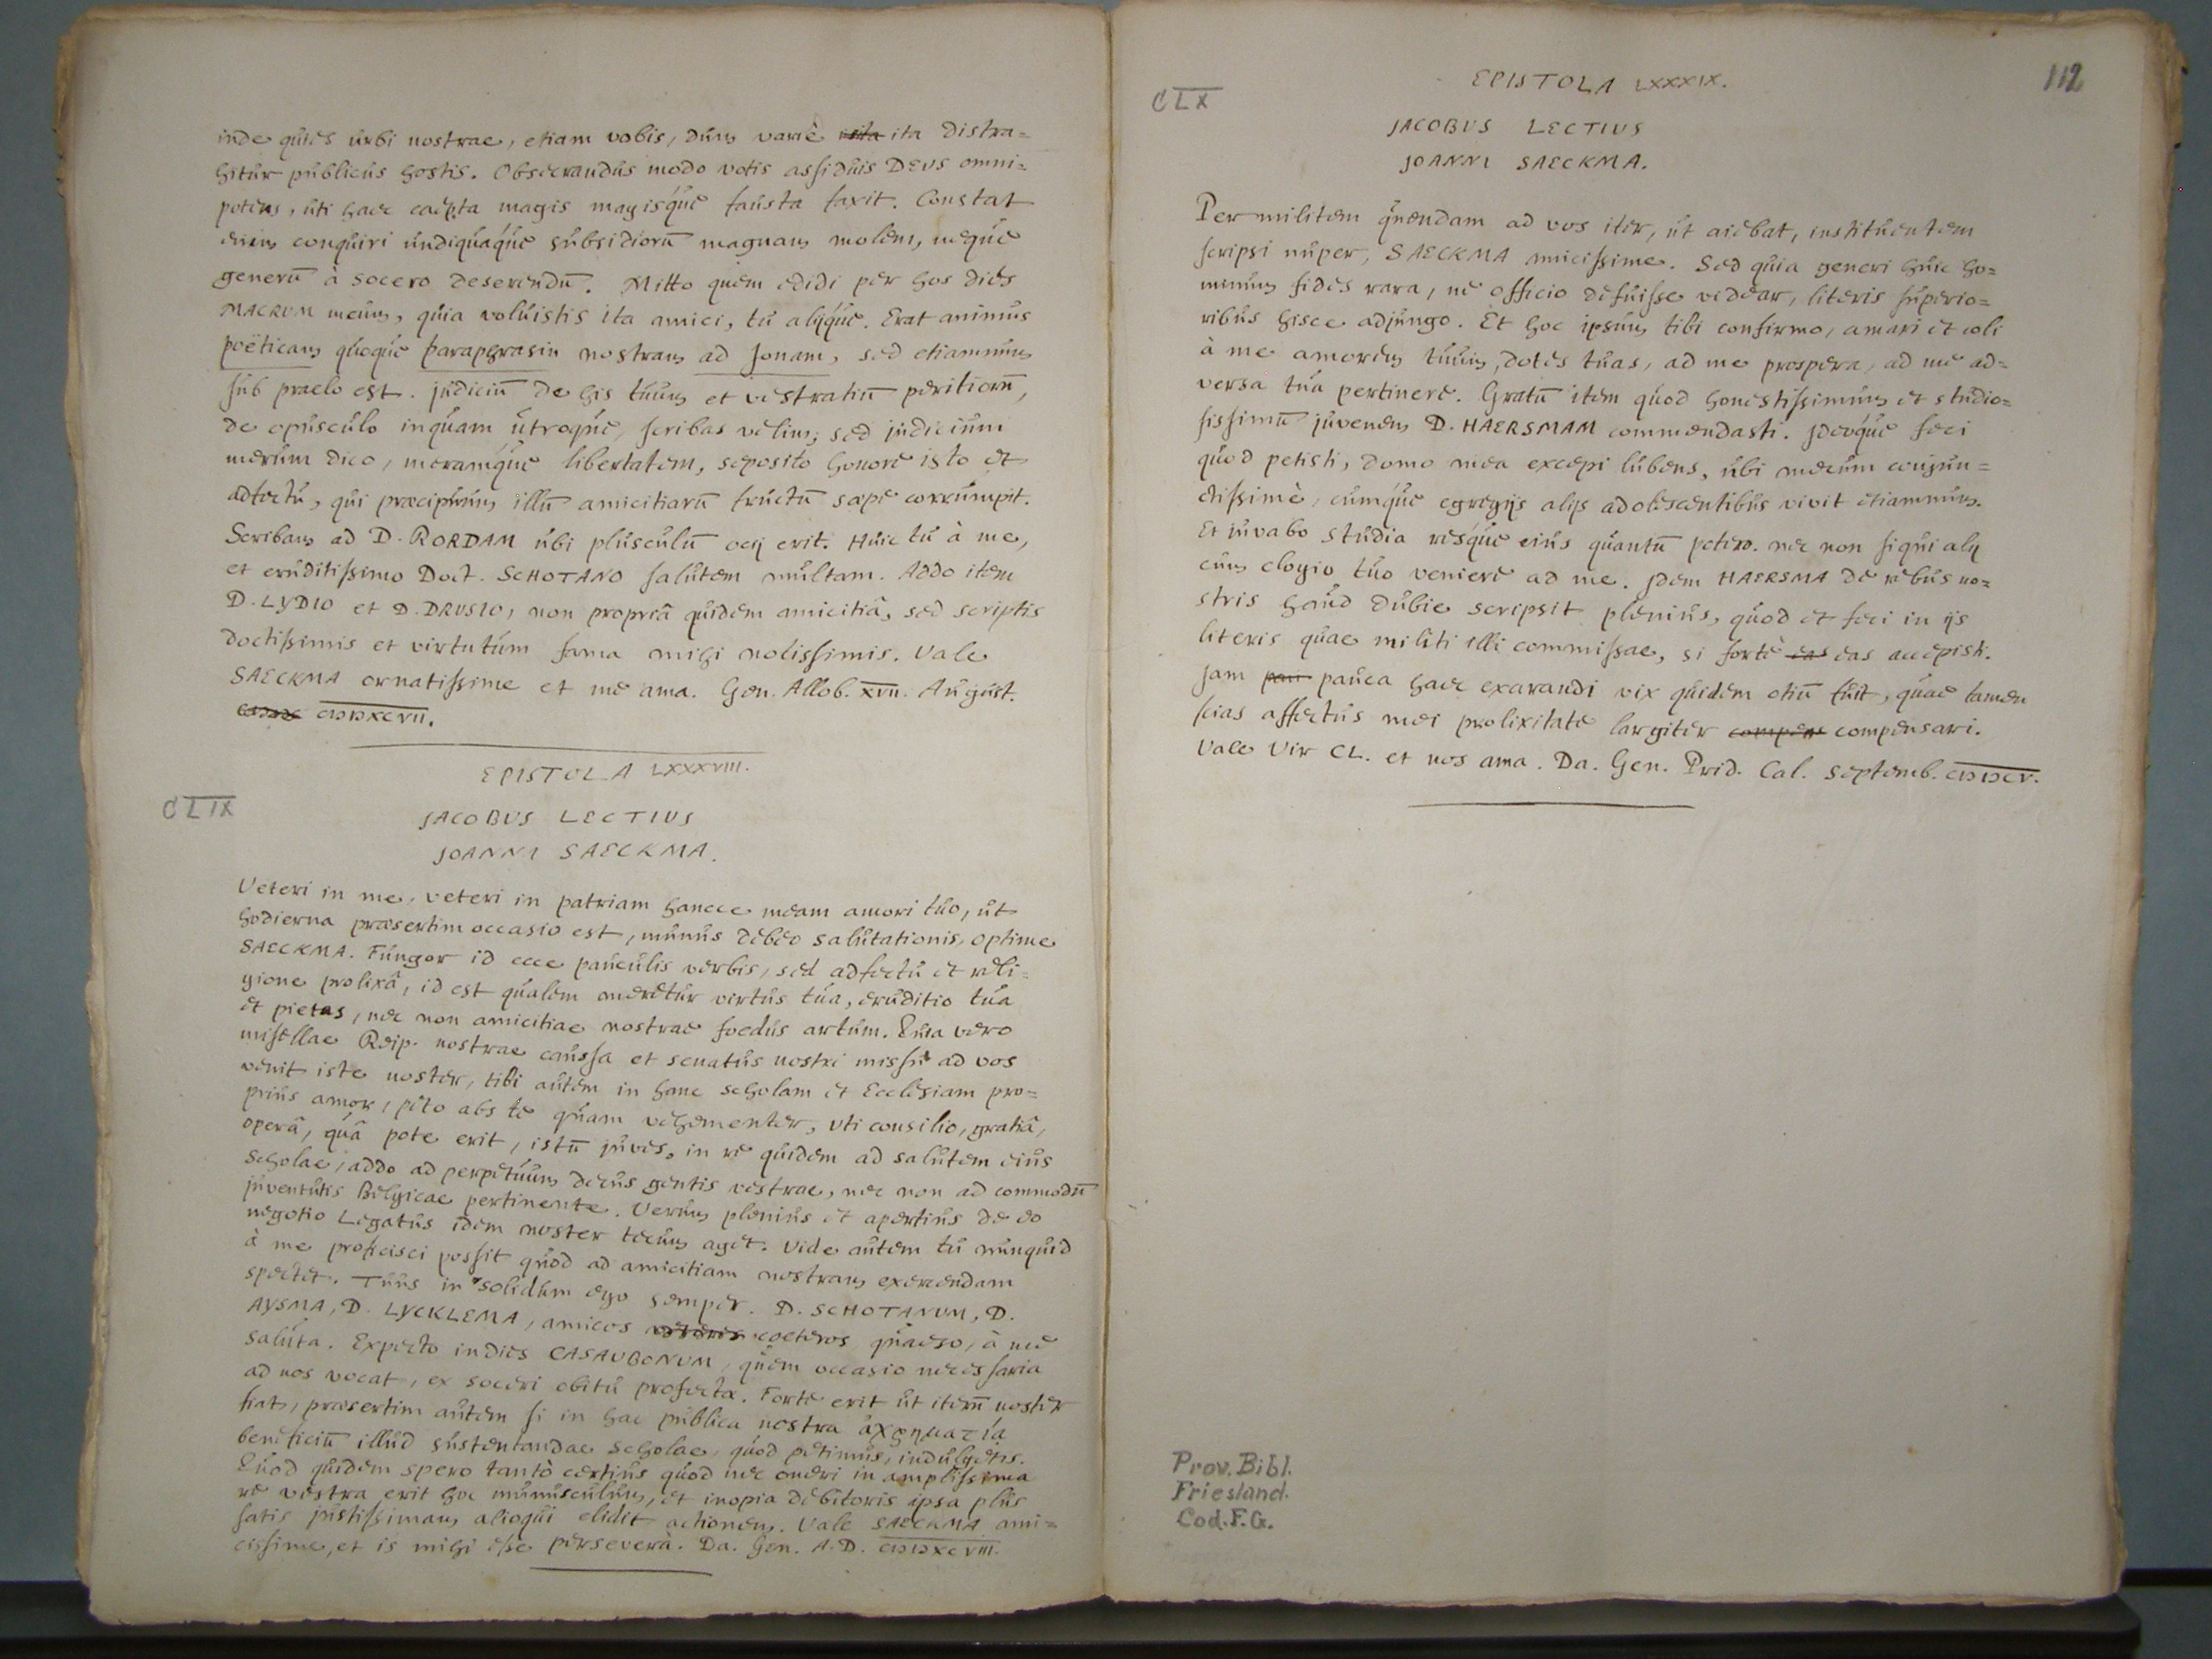 inde quies urbi nostrae, etiam vobis, dum variè ita distra=
hitur publicus hostis. Obsecrandus modo votis assiduis DEUS omni=
potens, uti haec caepta magis magisque fausta faxit. Constat
enim conquiri undiquaque subsidiorū magnam molem, neque
generū à socero deserendū. Mitto quem edidi per hos dies
MACRUM meum, quia voluistis ita amici, tu alijque. Erat animus
poëticam quoque paraphrasin nostram ad Jonam, sed etiamnum
sub praelo est. judiciū de his tuum et vestratiū peritiorū,
de opusculo inquam utroque, scribas velim, sed judicium
merum dico, meramque libertatem, seposito honore isto et
adfectu, qui praecipuum illū amicitiarū fructū sape corrumpit.
Scribam ad D. RORDAM ubi plusculū ocij erit. Huic tu à me,
et eruditissimo Doct. SCHOTANO salutem multam. Addo item
D. LYDIO et D. DRUSIO, non propriâ quidem amicitiâ, sed scriptis
doctissimis et virtutum fama mihi notissimis. Vale
SAECKMA ornatissime et me ama. Gen. Allob. XVII. August.
CIↃIↃXCVII.
EPISTOLA LXXXVIII.
CLIX
JACOBUS LECTIUS
JOANNI SAECKMA.
Veteri in me, veteri in patriam hancce meam amori tuo, ut
hodierna praesertim occasio est, munus debeo salutationis, optime
SAECKMA. Fungor id ecce pauculis verbis, sed adfectu et reli=
gione prolixâ, id est qualem meretur virtus tua, eruditio tua
et pietas, nec non amicitiae nostrae foedus artum. Quia vero
misellae Reip. nostrae caussa et senatus nostri missu ad vos
venit iste noster, tibi autem in hanc scholam et Ecclesiam pro=
prius amor, peto abs te quam vehementer, uti consilio, gratiâ,
operâ, quâ pote erit, istū juves, in re quidem ad salutem eius
scholae, addo ad perpetuum decus gentis vestrae, nec non ad commodū
juventutis Belgicae pertinente. Verum plenius et apertius de eo
negotio Legatus idem noster tecum aget. Vide autem tu nunquid
à me proficisci possit quod ad amicitiam nostram exercendam
spectet. Tuus in solidum ego semper. D. SCHOTANUM, D.
AYSMA, D. LYCKLEMA, amicos coeteros, quaeso, à me
saluta. Expecto indies CASAUBONUM, quem occasio necessaria
ad nos vocat, ex soceri obitu profecta. Forte erit ut iterū noster
fiat, praesertim autem si in hac publica nostra ἀχρηματία
beneficiū illud sustentandae scholae, quod petimus, indulgetis.
Quod quidem spero tantò certius quod nec oneri in amplissima
re vestra erit hoc munusculum, et inopia debitoris ipsa plus
satis justissimam alioqui elidit actionem. Vale SAECKMA ami=
cissime, et is mihi esse persevera. Da. Gen. A.D. CIↃIↃXCVIII.
112
EPISTOLA LXXXIX.
CLX
JACOBUS LECTIUS
JOANNI SAECKMA.
Per militem quendam ad vos iter, ut aiebat, instituentem
scripsi nuper, SAECKMA amicissime. Sed quia generi huic ho=
minum fides rara, ne officio defuisse videar, literis superio=
ribus hisce adjungo. Et hoc ipsum tibi confirmo, amari et coli
à me amorem tuum, dotes tuas, ad me prospera, ad me ad=
versa tua pertinere. Gratū item quod honestissimum et studio=
sissimū juvenem D. HAERSMAM commendasti. Ideoque feci
quod petisti, domo mea excepi lubens, ubi mecum conjun=
ctissimè, cumque egregijs alijs adolescentibus vivit etiamnum.
Et juvabo studia resque eius quantū potero. nec non siqui alij
cum elogio tuo venere ad me. Idem HAERSMA de rebus no=
stris haud dubie scripsit plenius, quod et feci in ijs
literis quae militi illi commissae, si fortè eas eas accepisti.
Jam pau pauca haec exarandi vix quidem otiū fuit, quae tamen
scias affectus mei prolixitate largiter compens compensari.
Vale Vir CL. et nos ama. Da. Gen. Prid. Cal. Septemb. CIↃIↃCV.
Prov. Bibl.
Friesland.
Cod. F.G.